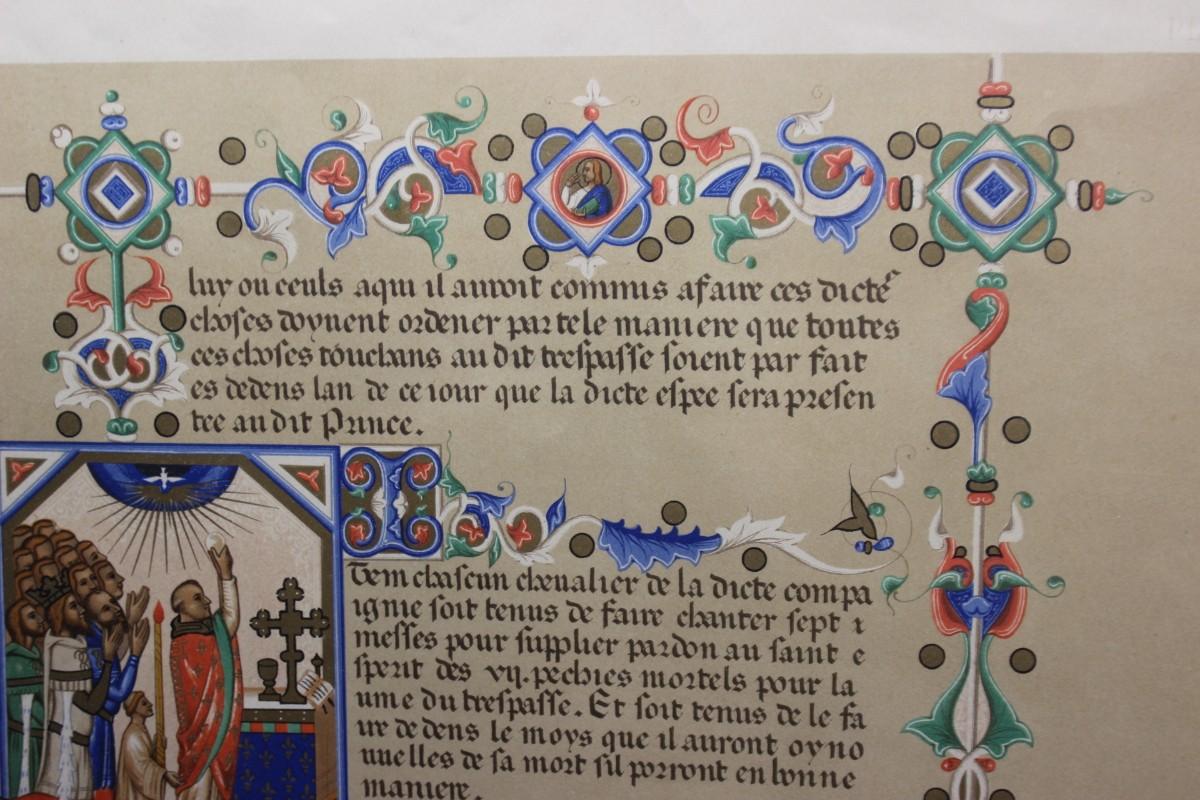 luy ou ceuls a qui il auroit commis a faire ces dicte
choses doyuent ordener par tele maniere que toutes
ces choses touchans au dit trespasse soient par fait
es dedens lan de ce iour que la dicte espee sera presen
tee au dit Prince.
Item chascun cheualier de la dicte compa
ignie soit tenus de faire chanter sept
messes pour supplier pardon au saint e
sperit des vij. pechies mortels pour la
ume du trespasse. Et soit tenus de le fa
ire dedens le moys que il auront oy no
uuelles de sa mort sil porront en bonne
maniere.